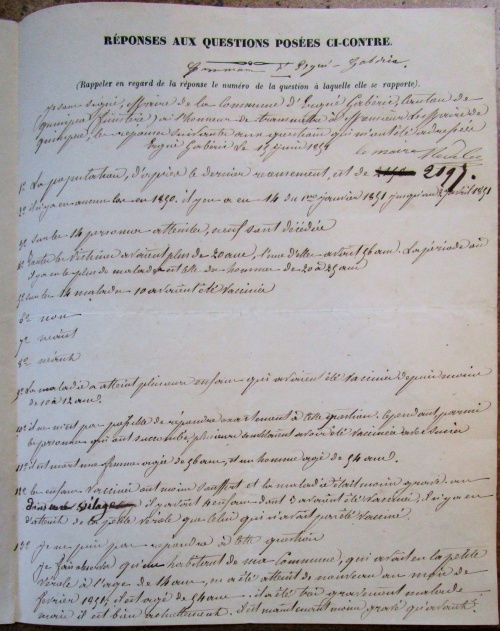 RÉPONSES AUX QUESTIONS POSÉES CI-CONTRE.
Commune d'Ergué-Gabéric
(Rappeler en regard de la réponse le numéro de la question à laquelle elle se rapporte).
maire de la commune d'Ergué Gabéric, Canton de
(quimper, finistère) a l'honneur de transmettre à Monsieur le maire de
quimper, les réponses suivantes aux questions qui m'ont été adressées
Ergué Gabéric le 15 juin 1851
le maire
1° La population, d'après le dernier recensement, est de 2195.
2° il n'y a eu aucun cas en 1850. il y en a eu 14 du 1er janvier 1851 jusqu'au avril 1851
sur les 14 personnes atteintes, neuf sont décédées
toutes les victimes avaient plus de 20 ans, l'une d'elles avait 56 ans. La période où
il y a eu le plus de malades est celle des hommes de 20 à 25 ans
sur les 14 malades 10 avaient été vaccinés
6° non
7° néant
8° néant
9° La maladie a atteint plusieurs enfans qui avaient été vaccinés depuis moins
de 10 à 12 ans.
10° il ne m'est pas possible de répondre exactement à cette question. Cependant parmi
les personnes qui ont succombé, plusieurs semblaient avoir été vaccinées avec succès
11° il est mort une femme agée de 56 ans, et un homme agé de 54 ans.
12° les enfans vaccinés ont moins souffert et la maladie était moins grave. au
il y avait 4 enfans dont 3 avaient été vaccinés, il n'y a eu
d'atteint de la petite vérole que celui qui n'avait pas été vacciné.
13° je ne puis pas répondre à cette question
je sais qu'un habitant de ma commune, qui avait eu la petite
vérole à l'age de 14 ans, en a été atteint de nouveau au mois de
février 1851, il est agé de 54 ans. il a été bien gravement malade
mais il est bien actuellement. il est maintenant moins gravé qu'avant.